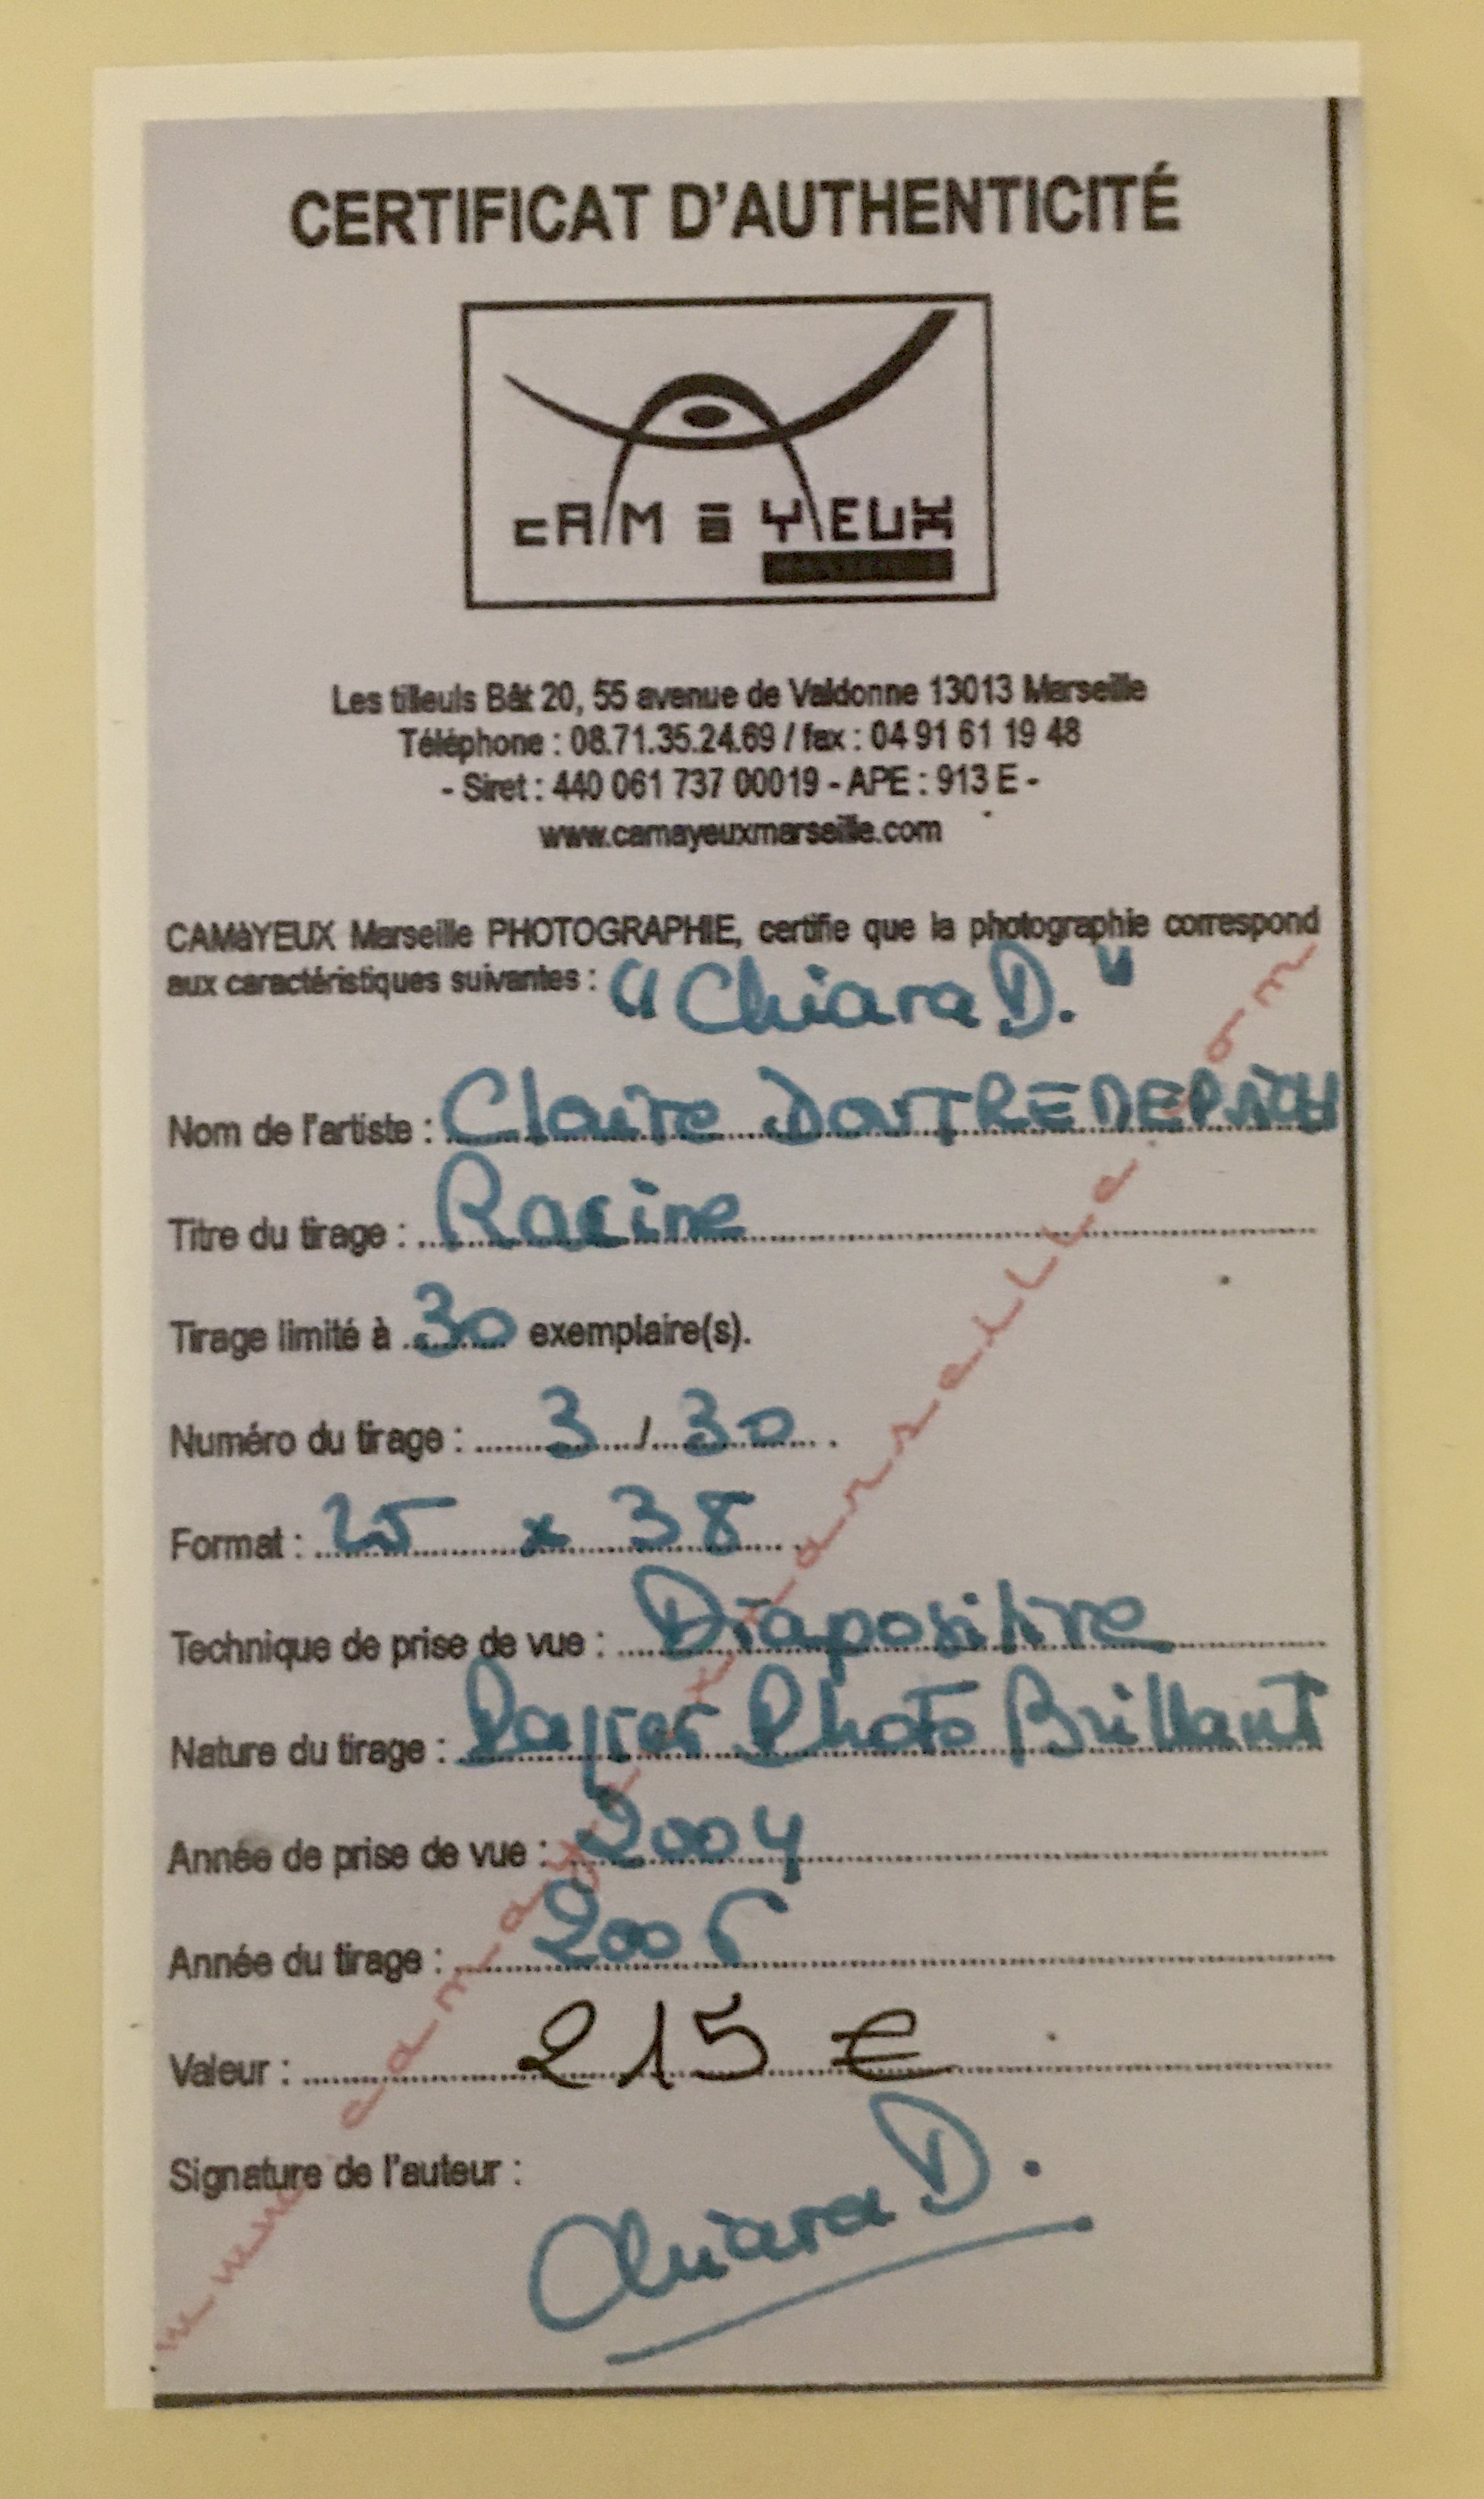 CERTIFICAT D'AUTHENTICITÉ
CAMàYEUX
Les tilleuls Bât 20, 55 avenue de Valdonne 13013 Marseille
Téléphone : 08.71.35.24.69 / fax : 04 91 61 19 48
- Siret : 440 061 737 00019 - APE : 913 E -
www.camayeuxmarseille.com
CAMàYEUX Marseille PHOTOGRAPHIE, certifie que la photographie correspond
aux caractéristiques suivantes : "Chiara D."
Nom de l'artiste : Claire
Titre du tirage : Racine
Tirage limité à 30 exemplaire(s).
Numéro du tirage : 3 / 30
Format : 25 x 38
Technique de prise de vue : Diapositive
Nature du tirage : Papier Photo Brillant
Année de prise de vue : 2004
Année du tirage :
Valeur : 215 €
Signature de l'auteur :
Chiara D.
www.camayeuxmarseille.com